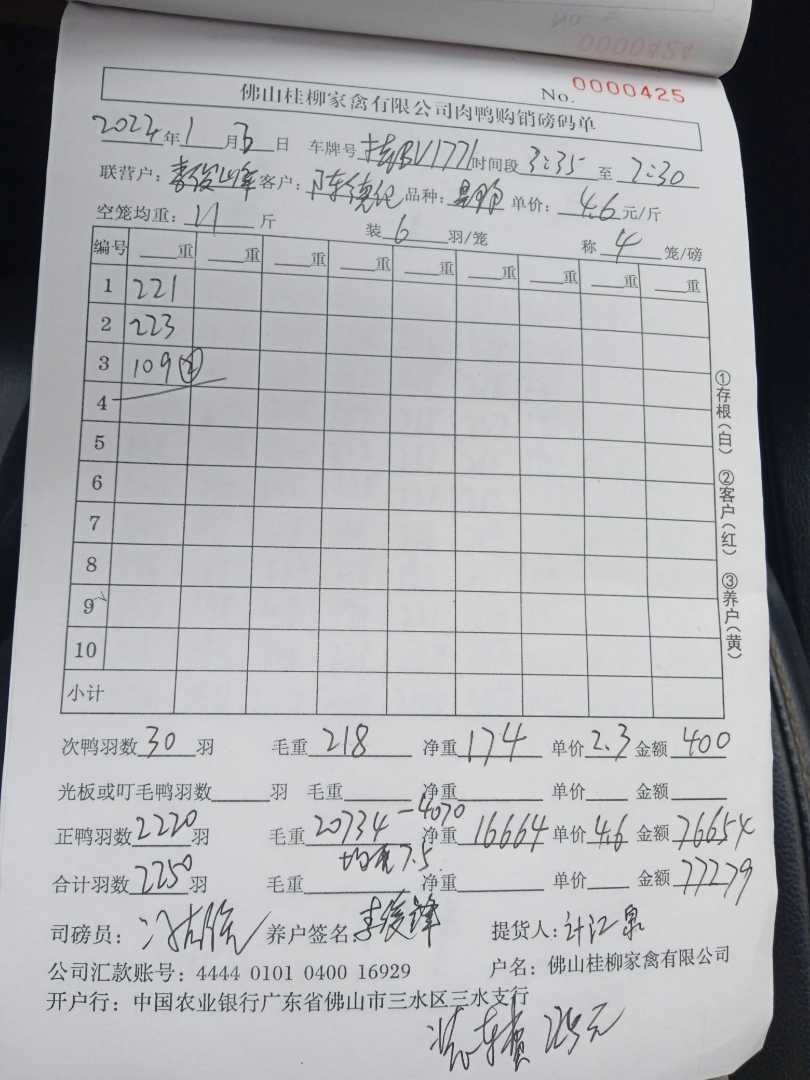 No. 0000424
No. 0000425
佛山桂柳家禽有限公司肉鸭购销磅码单
2022年1月3日 车牌号 桂RV1771 时间段 3:35 至 7:30
联营户:李俊峰 客户:陈德 品种: 单价:4.6元/斤
空笼均重:11斤 装6羽/笼 称4笼/磅
编号 重 重 重 重 重 重 重 重 重
1 221
2 223
3 109②
4
5
6
7
8
9
10
小计
①存根(白) ②客户(红) ③养户(黄)
次鸭羽数30羽 毛重218 净重174 单价2.3 金额400
光板或叮毛鸭羽数 羽 毛重 净重 单价 金额
正鸭羽数2220羽 毛重20734-4070 净重16664 单价4.6 金额76654
均重7.5
合计羽数2250羽 毛重 净重 单价 金额77279
司磅员: 养户签名:李俊锋 提货人:计江泉
公司汇款账号:4444 0101 0400 16929 户名:佛山桂柳家禽有限公司
开户行:中国农业银行广东省佛山市三水区三水支行
装车费225元